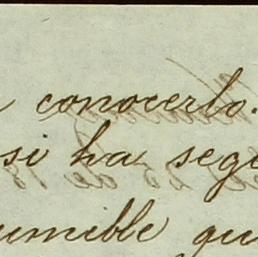 conocerlo.
si ha segu
umible qu